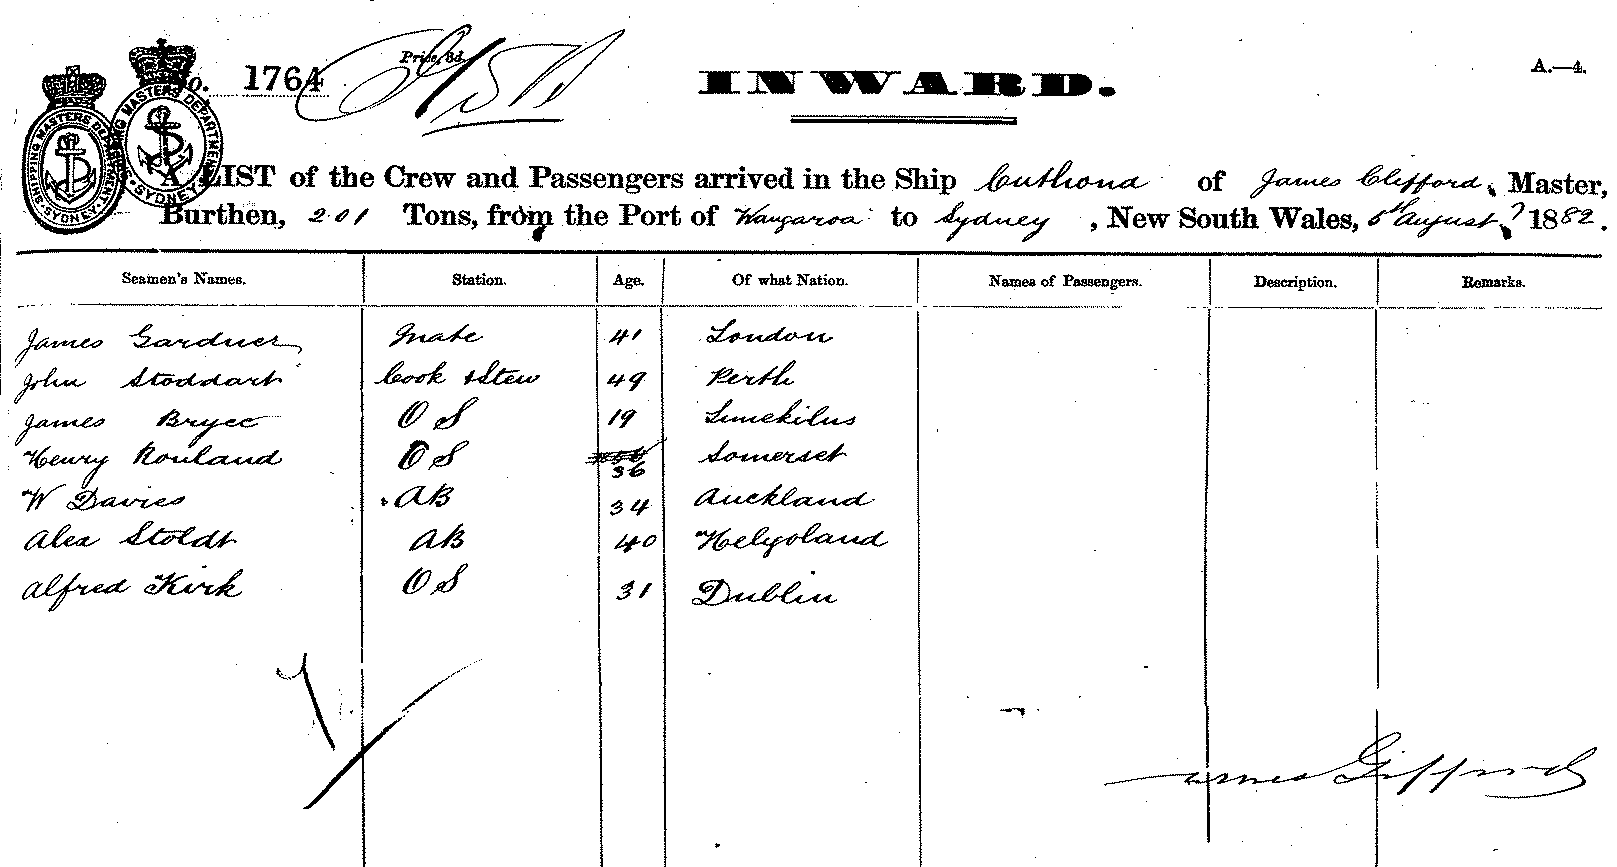 No. 1764 Price, 3d. INWARD. A.—4.
SHIPPING MASTERS DEPARTMENT SYDNEY
SHIPPING MASTERS DEPARTMENT SYDNEY
A LIST of the Crew and Passengers arrived in the Ship Cuthona of James Clifford, Master,
Burthen, 201 Tons, from the Port of Wangaroa to Sydney, New South Wales, August 1882.
Seamen's Names. Station. Age. Of what Nation. Names of Passengers. Description. Remarks.
James Gardner Mate 41 London
John Stoddart Cook & Stew 49 Perth
James Bryce O S 19 Limekilns
Henry Rouland O S 36 Somerset
W Davies AB 34 Auckland
Alex Stoldt AB 40 Helgoland
Alfred Kirk O S 31 Dublin
7
James Clifford